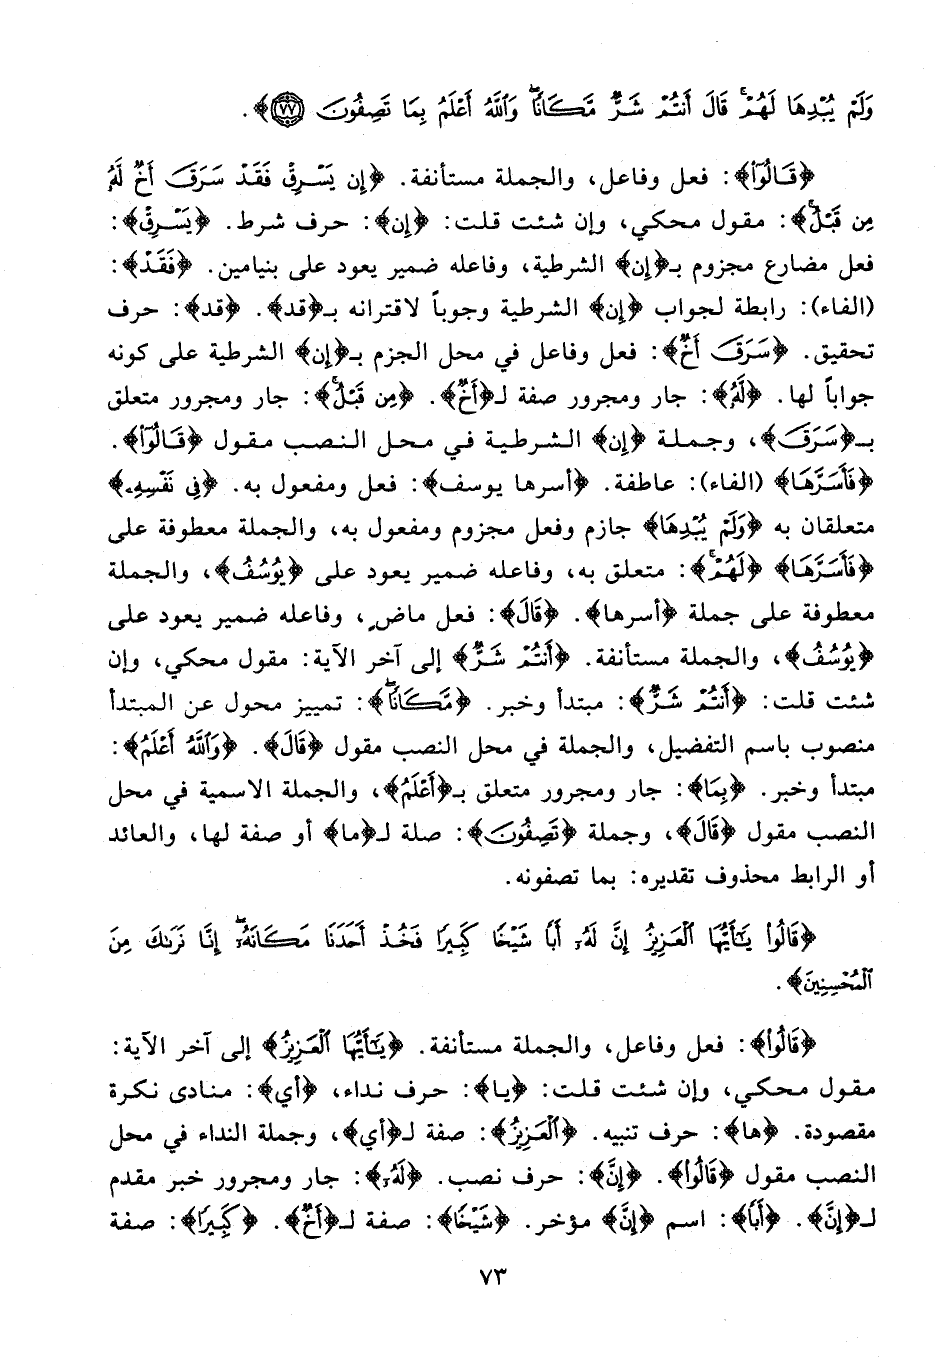 وَلَمْ يُبْدِهَا لَهُمْ ۚ قَالَ أَنتُمْ شَرٌّ مَّكَانًا ۖ وَاللَّهُ أَعْلَمُ بِمَا تَصِفُونَ ۝٧٧﴾.
﴿قَالُوٓا۟﴾: فعل وفاعل، والجملة مستأنفة. ﴿إِن يَسْرِقْ فَقَدْ سَرَقَ أَخٌ لَّهُ
مِن قَبْلُ ۚ﴾: مقول محكي، وإن شئت قلت: ﴿إِن﴾: حرف شرط. ﴿يَسْرِقْ﴾:
فعل مضارع مجزوم بـ﴿إن﴾ الشرطية، وفاعله ضمير يعود على بنيامين. ﴿فَقَدْ﴾:
(الفاء): رابطة لجواب ﴿إن﴾ الشرطية وجوباً لاقترانه بـ﴿قد﴾. ﴿قد﴾: حرف
تحقيق. ﴿سَرَقَ أَخٌ﴾: فعل وفاعل في محل الجزم بـ﴿إن﴾ الشرطية على كونه
جواباً لها. ﴿لَّهُ﴾: جار ومجرور صفة لـ﴿أَخٌ﴾. ﴿مِن قَبْلُ ۚ﴾: جار ومجرور متعلق
بـ﴿سَرَقَ﴾، وجملة ﴿إن﴾ الشرطية في محل النصب مقول ﴿قَالُوٓا۟﴾.
﴿فَأَسَرَّهَا﴾ (الفاء): عاطفة. ﴿أسرها يوسف﴾: فعل ومفعول به. ﴿فِى نَفْسِهِۦ﴾
متعلقان به ﴿وَلَمْ يُبْدِهَا﴾ جازم وفعل مجزوم ومفعول به، والجملة معطوفة على
﴿فَأَسَرَّهَا﴾ ﴿لَهُمْ ۚ﴾: متعلق به، وفاعله ضمير يعود على ﴿يُوسُفُ﴾، والجملة
معطوفة على جملة ﴿أسرها﴾. ﴿قَالَ﴾: فعل ماضٍ، وفاعله ضمير يعود على
﴿يُوسُفُ﴾، والجملة مستأنفة. ﴿أَنتُمْ شَرٌّ﴾ إلى آخر الآية: مقول محكي، وإن
شئت قلت: ﴿أَنتُمْ شَرٌّ﴾: مبتدأ وخبر. ﴿مَّكَانًا ۖ﴾: تمييز محول عن المبتدأ
منصوب باسم التفضيل، والجملة في محل النصب مقول ﴿قَالَ﴾. ﴿وَاللَّهُ أَعْلَمُ﴾:
مبتدأ وخبر. ﴿بِمَا﴾: جار ومجرور متعلق بـ﴿أَعْلَمُ﴾، والجملة الاسمية في محل
النصب مقول ﴿قَالَ﴾، وجملة ﴿تَصِفُونَ﴾: صلة لـ﴿ما﴾ أو صفة لها، والعائد
أو الرابط محذوف تقديره: بما تصفونه.
﴿قَالُوا۟ يَٰٓأَيُّهَا ٱلْعَزِيزُ إِنَّ لَهُۥٓ أَبًا شَيْخًا كَبِيرًا فَخُذْ أَحَدَنَا مَكَانَهُۥٓ ۖ إِنَّا نَرَىٰكَ مِنَ
ٱلْمُحْسِنِينَ﴾.
﴿قَالُوا۟﴾: فعل وفاعل، والجملة مستأنفة. ﴿يَٰٓأَيُّهَا ٱلْعَزِيزُ﴾ إلى آخر الآية:
مقول محكي، وإن شئت قلت: ﴿يا﴾: حرف نداء، ﴿أي﴾: منادى نكرة
مقصودة. ﴿ها﴾: حرف تنبيه. ﴿ٱلْعَزِيزُ﴾: صفة لـ﴿أي﴾، وجملة النداء في محل
النصب مقول ﴿قَالُوا۟﴾. ﴿إِنَّ﴾: حرف نصب. ﴿لَهُۥٓ﴾: جار ومجرور خبر مقدم
لـ﴿إِنَّ﴾. ﴿أَبًا﴾: اسم ﴿إِنَّ﴾ مؤخر. ﴿شَيْخًا﴾: صفة لـ﴿أَخٌ﴾. ﴿كَبِيرًا﴾: صفة
٧٣